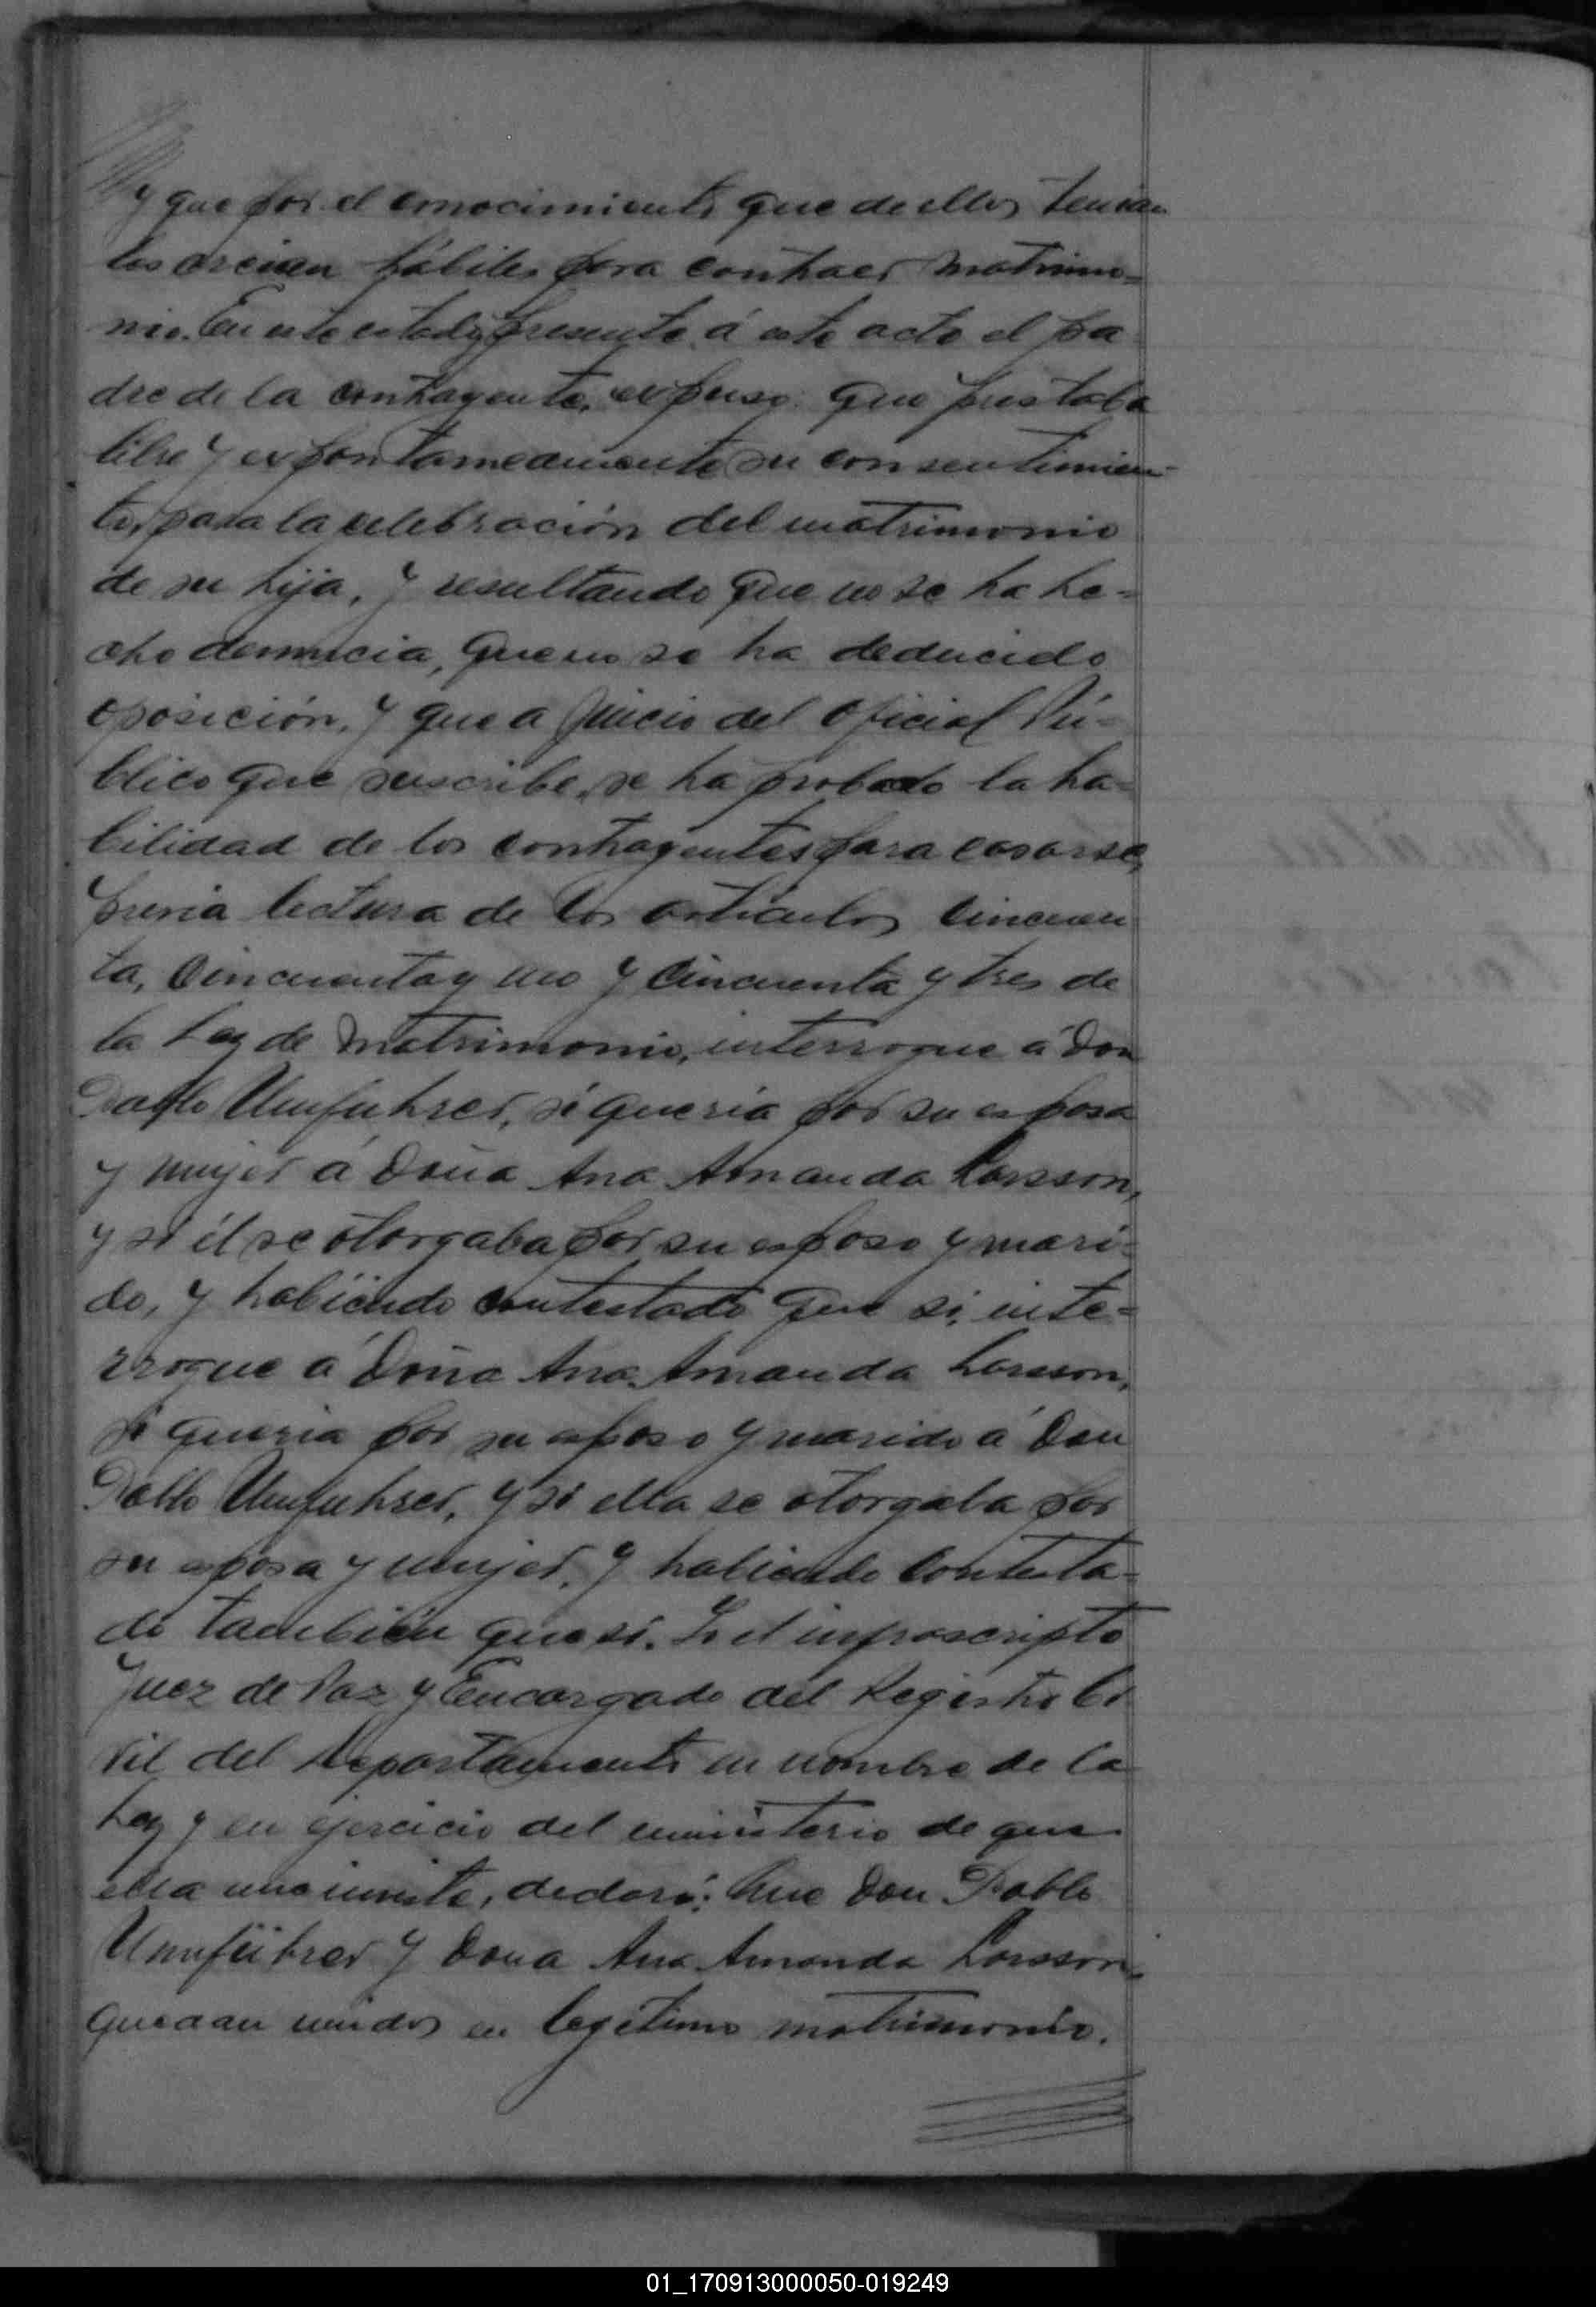 y que por el conocimiento que de ellos tenian
los creian hábiles para contraer matrimo=
nio. En este estado, presente á este acto el pa
dre de la contrayente, expuso: que prestaba
libre y expontaneamente su consentimien-
to, para la celebración del matrimonio
de su hija, y resultando que no se ha he=
cho denuncia, que no se ha deducido
oposición, y que a juicio del Oficial Pú=
blico que suscribe, se ha probado la ha=
bilidad de los contrayentes para casarse,
previa lectura de los articulos cincuen
ta, cincuenta y uno y cincuenta y tres de
la Ley de Matrimonio, interrogue á Don
Pablo Umfuhrer, si queria por su esposa
y mujer á Doña Ana Amanda Larsson,
y si él se otorgaba por su esposo y mari=
do, y habiendo contestado que si, inte=
rrogue á Doña Ana Amanda Larsson,
si queria por su esposo y marido á Don
Pablo Umfuhrer, y si ella se otorgaba por
su esposa y mujer, y habiendo contesta=
do también que si. Yo el infrascripto
Juez de Paz y Encargado del Registro Ci
vil del Departamento en nombre de la
Ley y en ejercicio del ministerio de que
ella me inviste, declaró: Que Don Pablo
Umführer y Dona Ana Amanda Larsson,
quedan unidos en legitimo matrimonio.
01_170913000050-019249